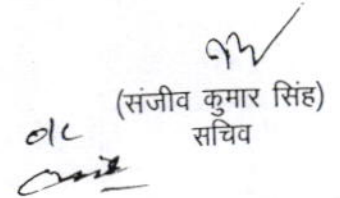 (संजीव कुमार सिंह)
सचिव
o/c